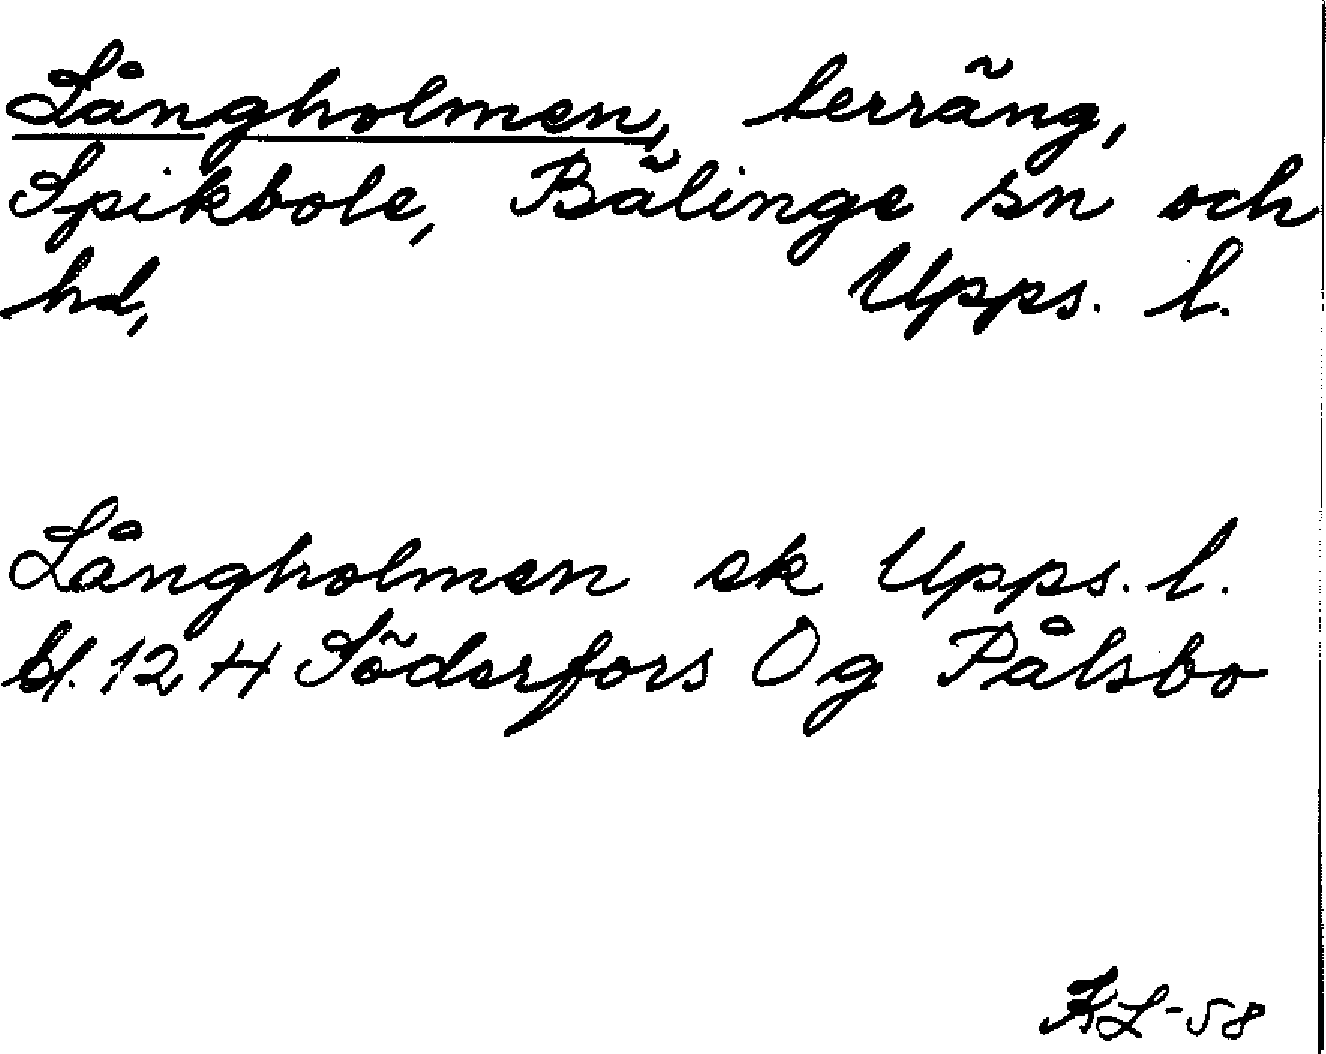 Långholmen, terräng,
Spikbole, Bälinge sn och
hd, Upps. l.
Långholmen ek Upps. l.
bl. 12 H Söderfors Og Pålsbo
KL-58